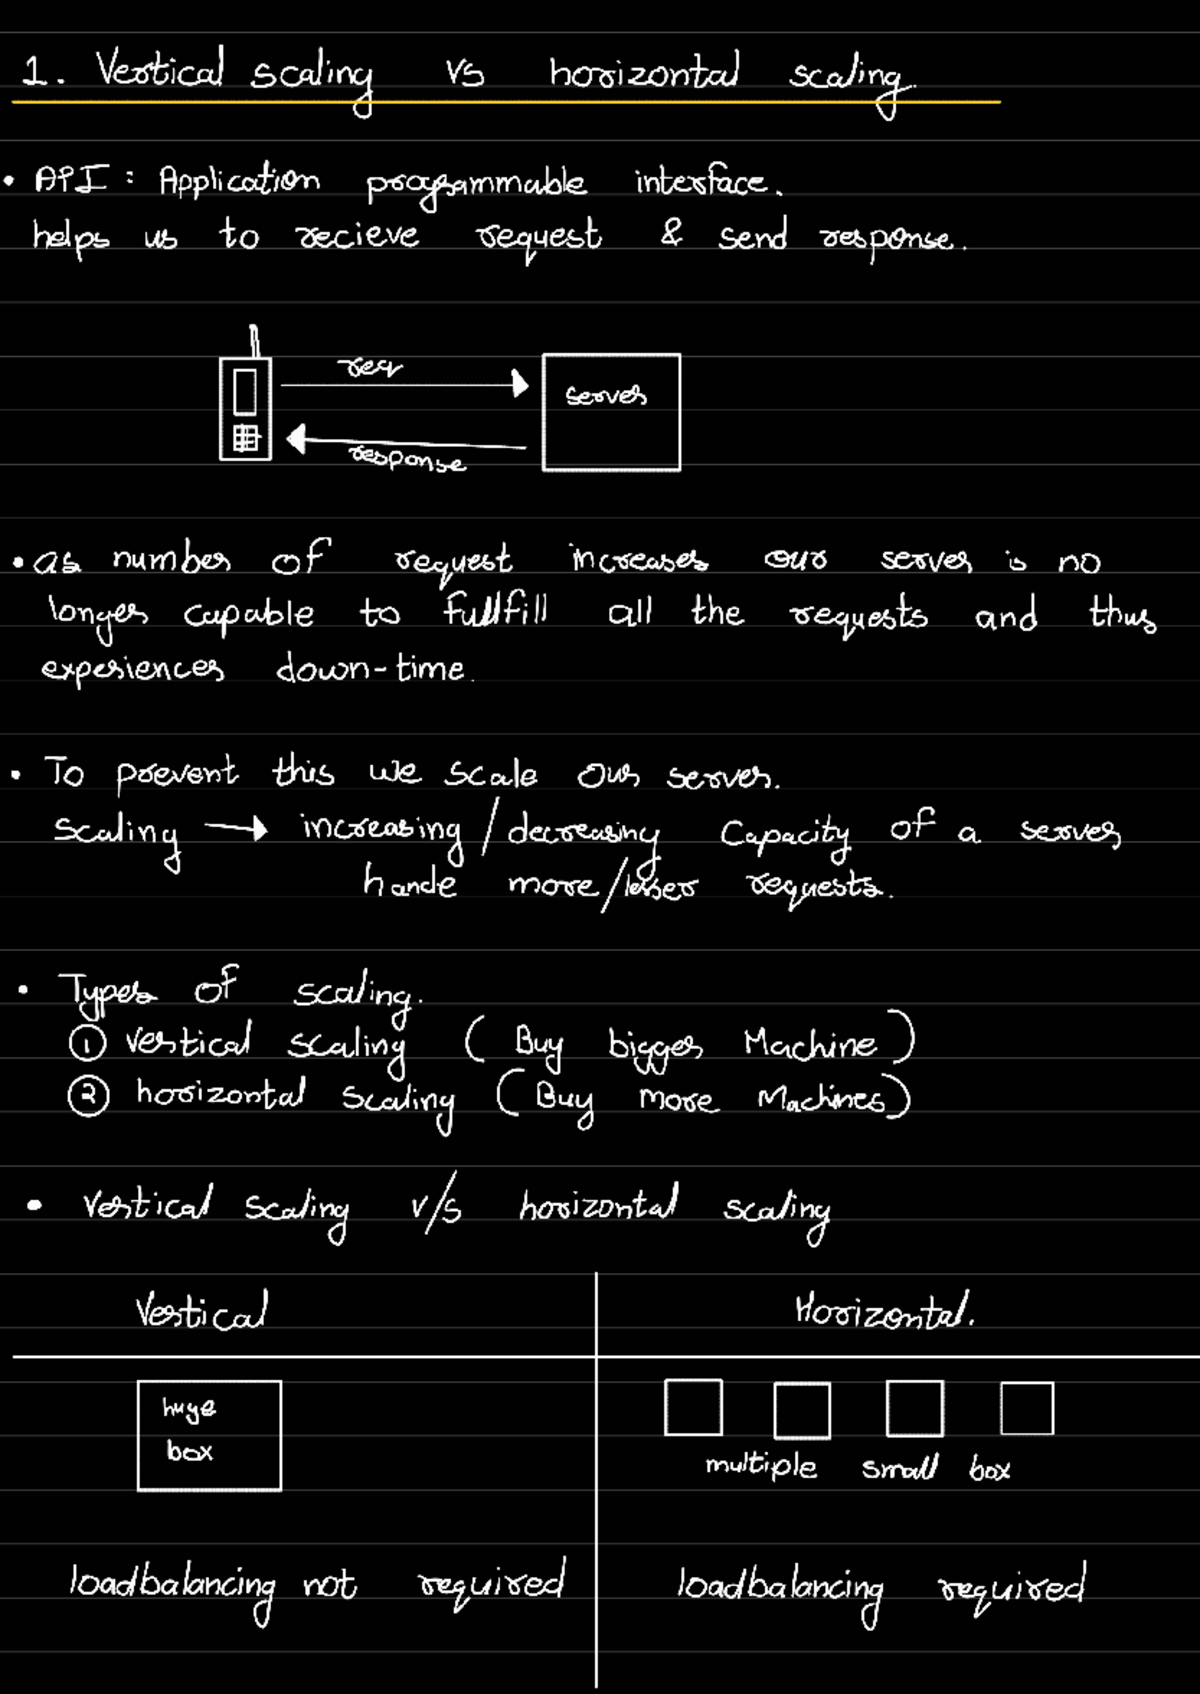 1. Vertical scaling vs horizontal scaling.
• API : Application programmable interface.
helps us to recieve request & send response.
req
server
response
• as number of request increases our server is no
longer capable to fullfill all the requests and thus
experiences down-time.
• To prevent this we scale our server.
scaling → increasing / decreasing capacity of a server
hande more/lesser requests.
• Types of scaling.
① vertical scaling ( Buy bigger Machine )
② horizontal scaling ( Buy more Machines )
• vertical scaling v/s horizontal scaling
Vertical
Horizontal.
huge
box
multiple small box
loadbalancing not required
loadbalancing required